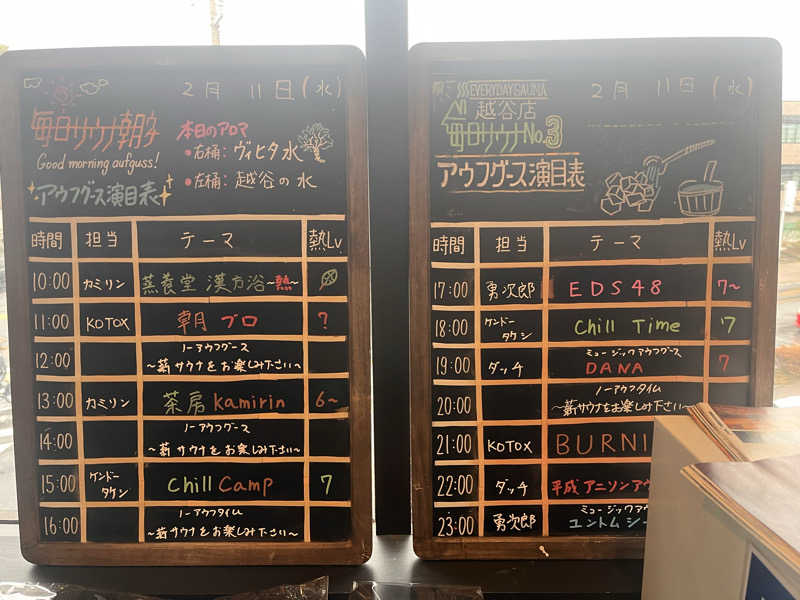 2月 11日(水)
毎日サウナ朝から
Good morning aufguss!
アウフグース演目表
本日のアロマ
・右桶:ヴィヒタ水
・左桶:越谷の水
時間 担当 テーマ 熱Lv
10:00 カミリン 蒸養堂 漢方浴~熱~
11:00 KOTOX 朝月プロ ?
12:00 ノーアウフグース
~薪サウナをお楽しみ下さい~
13:00 カミリン 茶房 Kamirin 6~
14:00 ノーアウフグース
~薪サウナをお楽しみ下さい~
15:00 ケンドータケシ Chill Camp 7
16:00 ノーアウフタイム
~薪サウナをお楽しみ下さい~
2月 11日(水)
EVERYDAY SAUNA
越谷店
毎日サウナ No.3
アウフグース演目表
時間 担当 テーマ 熱Lv
17:00 勇次郎 EDS48 7~
18:00 ケンドータケシ Chill Time 7
19:00 ダッチ ミュージックアウフグース
DANA 7
20:00 ノーアウフタイム
~薪サウナをお楽しみ下さい~
21:00 KOTOX BURNI
22:00 ダッチ 平成アニソンアウ
23:00 勇次郎 ミュージックアウ
ユントムシー